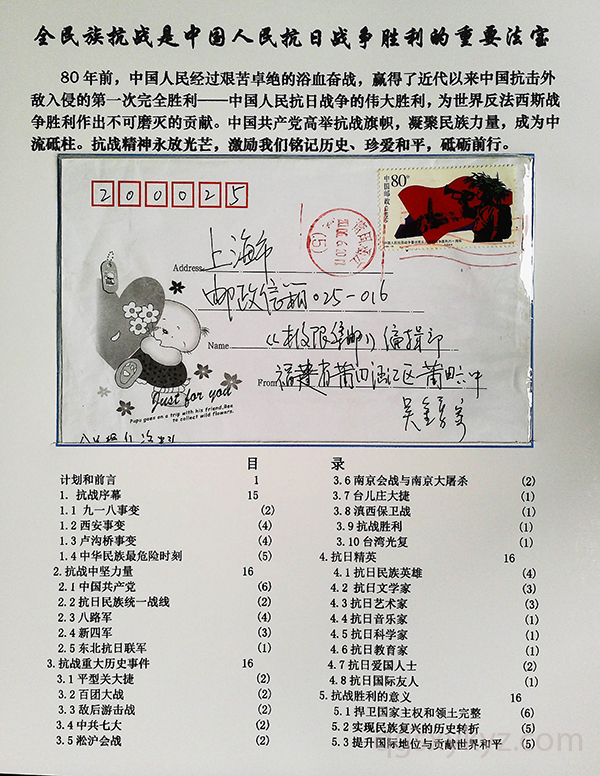 全民族抗战是中国人民抗日战争胜利的重要法宝
80年前，中国人民经过艰苦卓绝的浴血奋战，赢得了近代以来中国抗击外
敌入侵的第一次完全胜利——中国人民抗日战争的伟大胜利，为世界反法西斯战
争胜利作出不可磨灭的贡献。中国共产党高举抗战旗帜，凝聚民族力量，成为中
流砥柱。抗战精神永放光芒，激励我们铭记历史、珍爱和平，砥砺前行。
200025
80分
中国邮政
Address
上海市
邮政信箱025-016
Name
《极限集邮》编辑部
From
福建省莆田涵江区莆田六中
Just for you
Pupu goes on a trip with his friend,Bee
to collect wild flowers.
目 录
计划和前言 1
1. 抗战序幕 15
1.1 九一八事变 (2)
1.2 西安事变 (4)
1.3 卢沟桥事变 (4)
1.4 中华民族最危险时刻 (5)
2. 抗战中坚力量 16
2.1 中国共产党 (6)
2.2 抗日民族统一战线 (2)
2.3 八路军 (4)
2.4 新四军 (3)
2.5 东北抗日联军 (1)
3. 抗战重大历史事件 16
3.1 平型关大捷 (2)
3.2 百团大战 (2)
3.3 敌后游击战 (2)
3.4 中共七大 (2)
3.5 淞沪会战 (2)
3.6 南京会战与南京大屠杀 (2)
3.7 台儿庄大捷 (1)
3.8 滇西保卫战 (1)
3.9 抗战胜利 (1)
3.10 台湾光复 (1)
4. 抗日精英 16
4.1 抗日民族英雄 (4)
4.2 抗日文学家 (3)
4.3 抗日艺术家 (3)
4.4 抗日音乐家 (1)
4.5 抗日科学家 (1)
4.6 抗日教育家 (1)
4.7 抗日爱国人士 (2)
4.8 抗日国际友人 (1)
5. 抗战胜利的意义 16
5.1 捍卫国家主权和领土完整 (6)
5.2 实现民族复兴的历史转折 (5)
5.3 提升国际地位与贡献世界和平 (5)